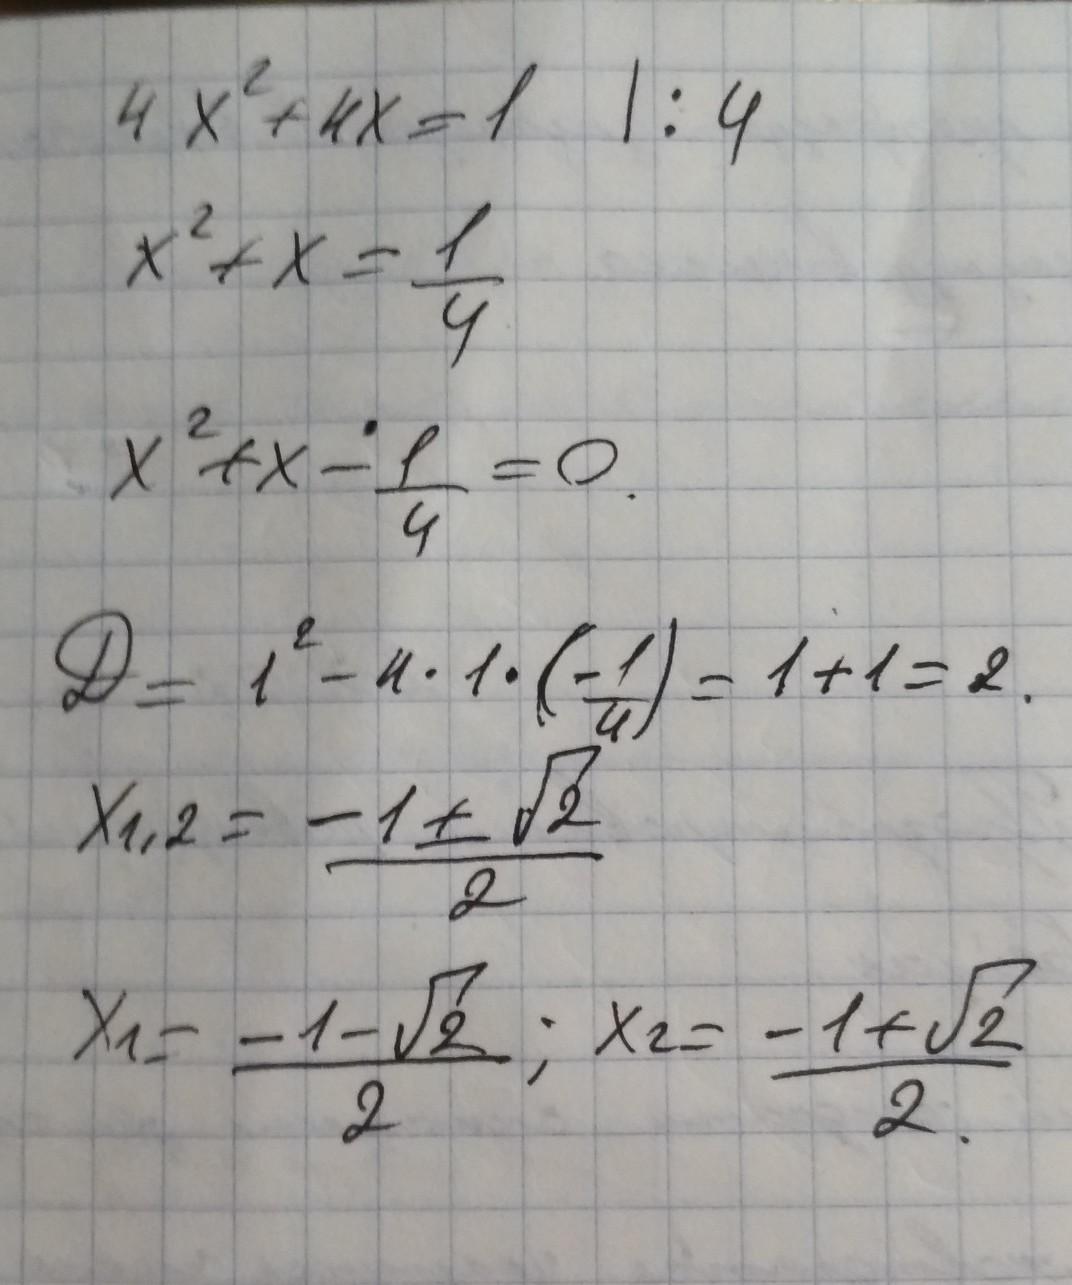 4x² + 4x = 1 | : 4
x² + x = 1/4
x² + x - 1/4 = 0.
D = 1² - 4 · 1 · (-1/4) = 1 + 1 = 2.
x1,2 = (-1 ± √2)/2
x1 = (-1 - √2)/2 ; x2 = (-1 + √2)/2.